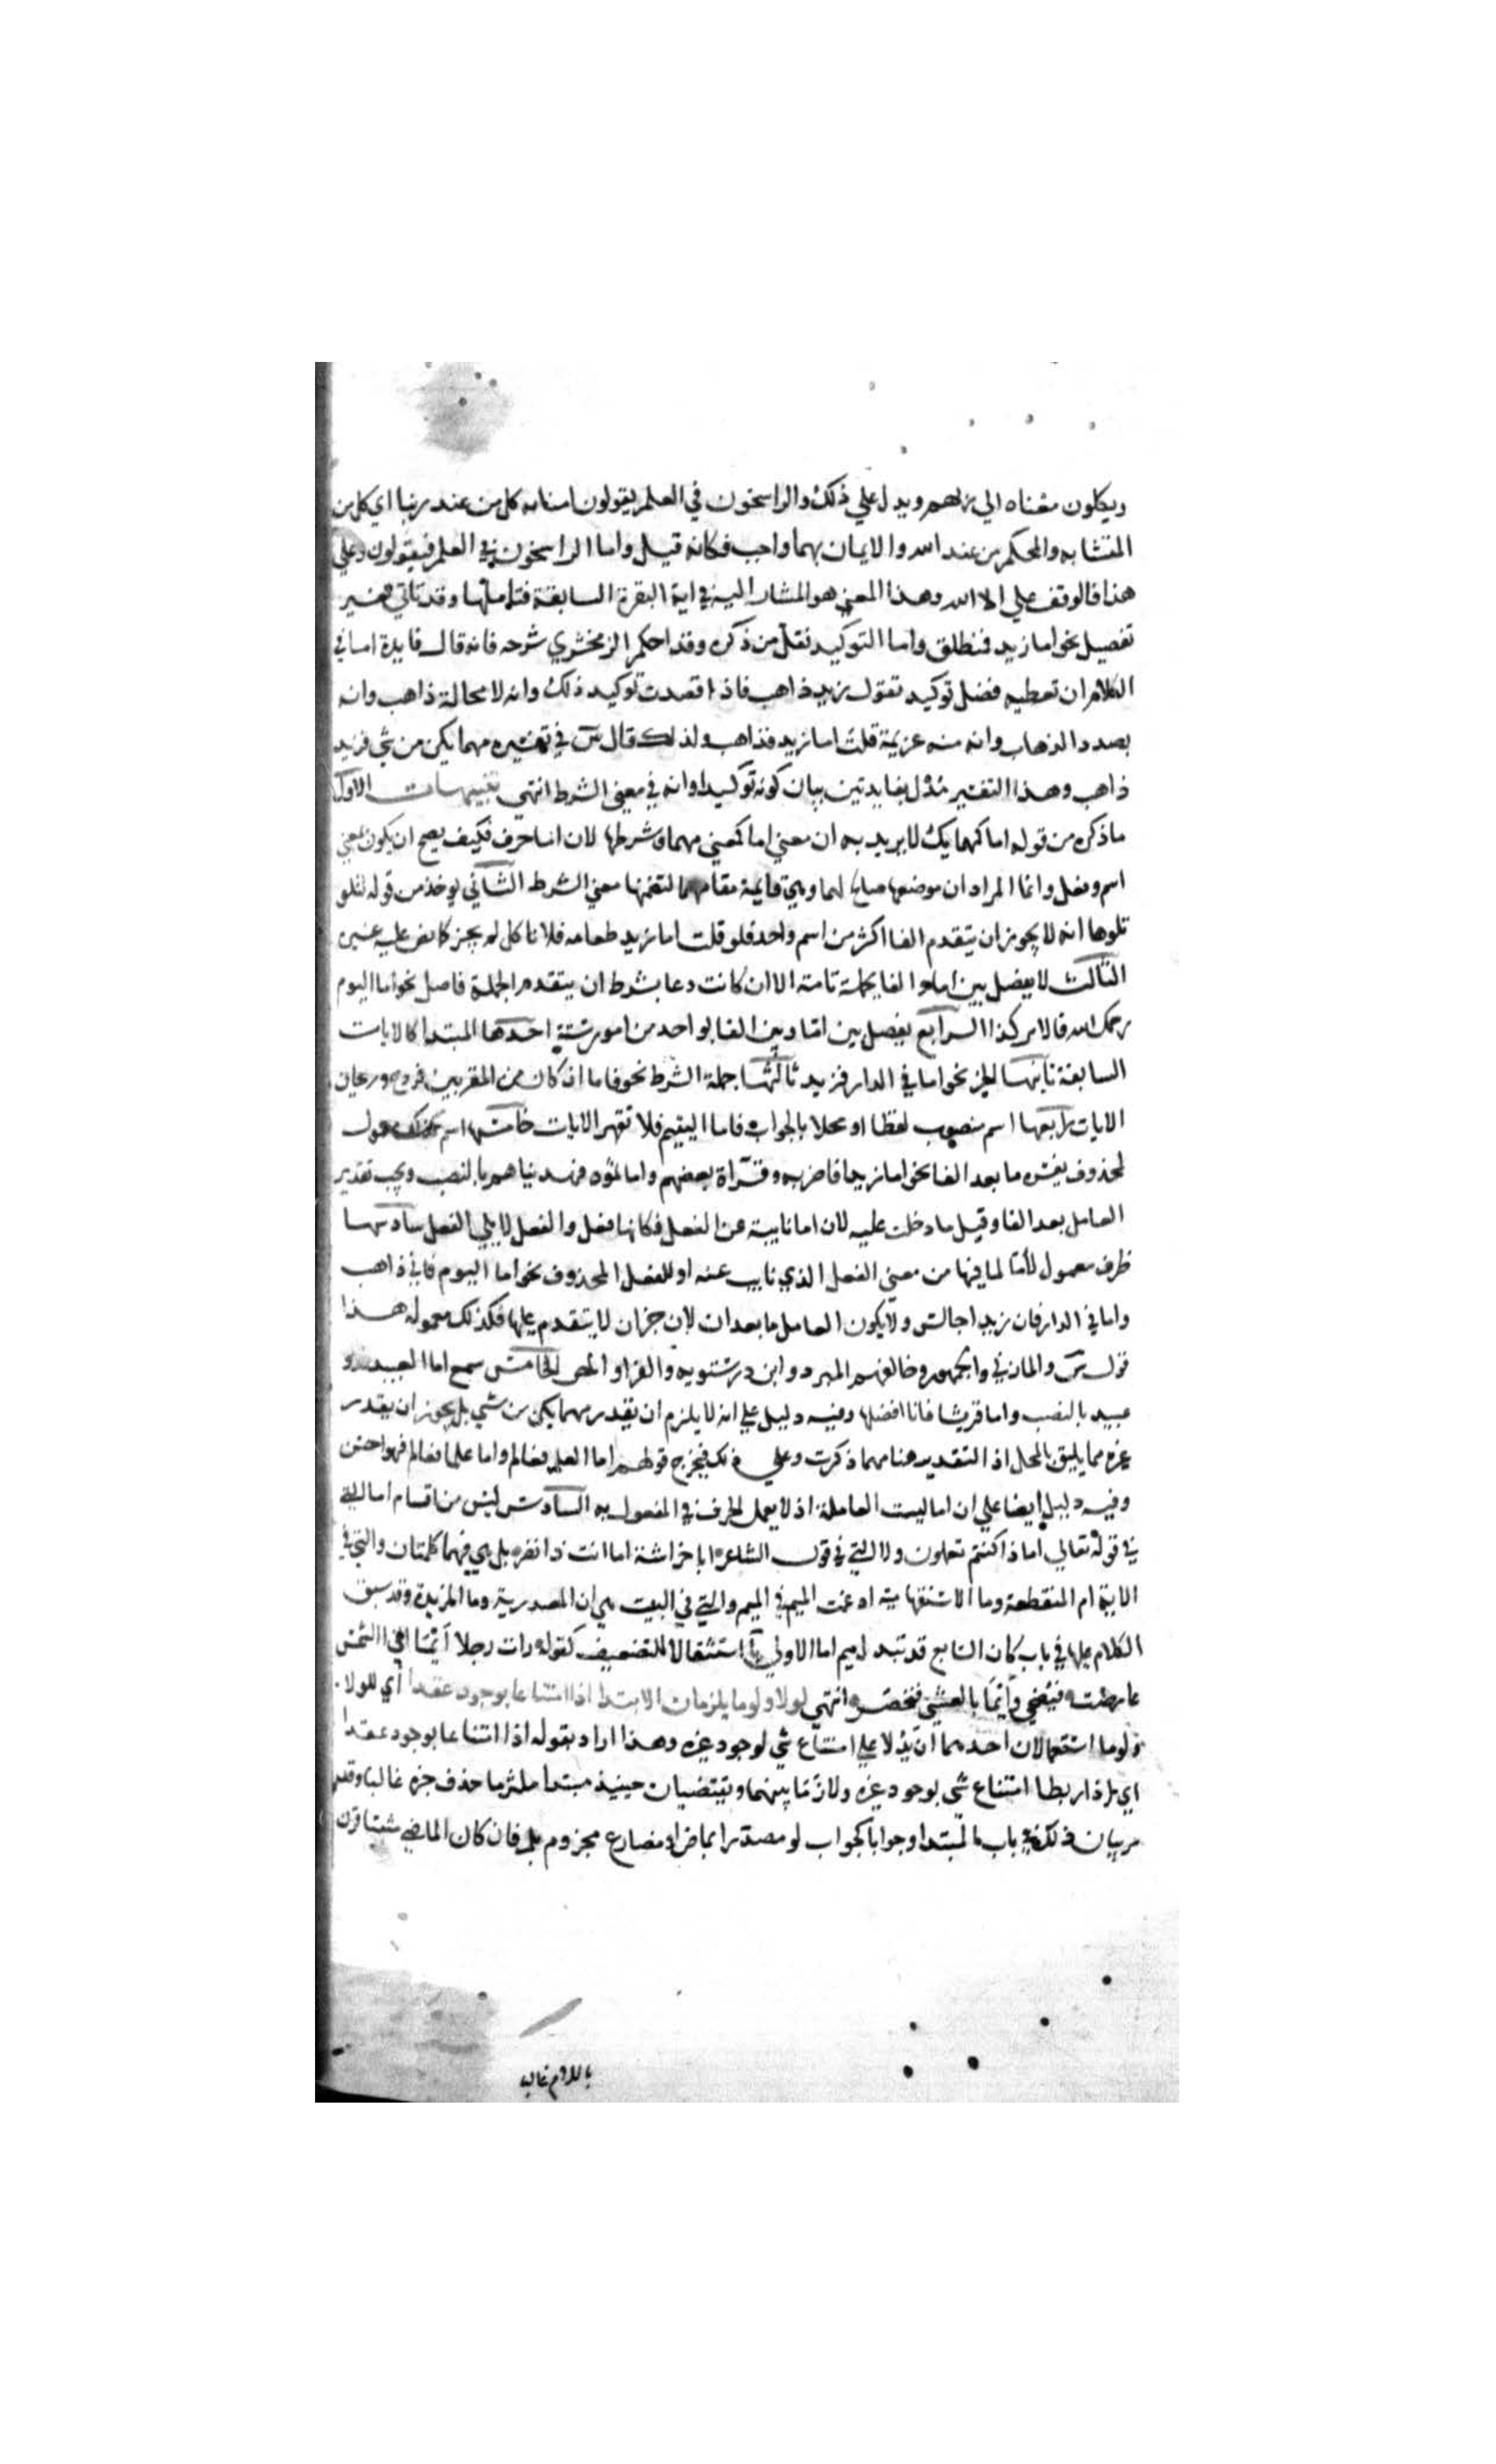 ويكلون معناه الي ربهم ويدل علي ذلك والراسخون في العلم يقولون امنا به كل من عند ربنا اي كل من
المتشابه والمحكم من عند الله والايمان بهما واجب فكانه قيل واما الراسخون في العلم فيقولون وعلي
هذا فالوقف علي الا الله وهذا المعني هو المشار اليه في اية البقرة السابقة فتاملها وقد تاتي لغير
تفصيل نحو اما زيد فمنطلق واما التوكيد فقل من ذكره وقد احكم الزمخشري شرحه فانه قال فايدة اما في
الكلام ان تعطيه فضل توكيد تقول زيد ذاهب فاذا قصدت توكيد ذلك وانه لا محالة ذاهب وانه
بصدد الذهاب وانه منه عزيمة قلت اما زيد فذاهب ولذلك قال س في تفسيره مهما يكن من شي فزيد
ذاهب وهذا التفسير مدل بفايدتين بيان كونه توكيدا وانه في معني الشرط انتهي تنبيهات الاول
ما ذكره من قوله اما كمهما يك لا يريد به ان معني اما كمعني مهما وشرطها لان اما حرف فكيف يصح ان يكون بمعني
اسم وفعل وانما المراد ان موضعها صالح لهما وهي قايمة مقامهما لتضمنها معني الشرط الثاني يوخذ من قوله لتلو
تلوها انه لا يجوز ان يتقدم الفا اكثر من اسم واحد فلو قلت اما زيد طعامه فلا تاكل لم يجز كما نص عليه غيره
الثالث لا يفصل بين اما والفا بجملة تامة الا ان كانت دعا بشرط ان يتقدم الجملة فاصل نحو اما اليوم
رحمك الله فالامر كذا الرابع يفصل بين اما وبين الفا بواحد من امور ستة احدها المبتدا كالايات
السابقة ثانيها الخبر نحو اما في الدار فزيد ثالثها جملة الشرط نحو فاما ان كان من المقربين فروح وريحان
الايات رابعها اسم منصوب لفظا او محلا بالجواب فاما اليتيم فلا تقهر الايات خامسها اسم كذلك معمول
لمحذوف يفسره ما بعد الفا نحو اما زيدا فاضربه وقراة بعضهم واما ثمود فهديناهم بالنصب ويجب تقدير
العامل بعد الفا وقيل ما دخلت عليه لان اما نايبة عن الفعل فكانها فعل والفعل لا يلي الفعل سادسها
ظرف معمول لأما لما فيها من معني الفعل الذي نايب عنه او للفعل المحذوف نحو اما اليوم فاني ذاهب
واما في الدار فان زيدا جالس ولا يكون العامل ما بعد ان لان خبر ان لا يتقدم عليها فكذلك معموله هذا
قول س والمازني والجمهور وخالفهم المبرد وابن درستويه والفرا و الخامس سمع اما العبيد فذو
عبيد بالنصب واما قريشا فانا افضلها وفيه دليل علي انه لا يلزم ان يقدر مهما يكن من شي بل يجوز ان يقدر
غيره مما يليق بالمحل اذ التقدير هنا مهما ذكرت وعلي ذلك فيخرج قولهم اما العلم فعالم واما علما فعالم فهو احسن
وفيه دليل ايضا علي ان اما ليست العاملة اذ لا يعمل الحرف في المفعول به السادس ليس من اقسام اما التي
في قوله تعالي اما ذا كنتم تعملون ولا التي في قول الشاعر ابا خراشة اما انت ذا نفر بل هي فيهما كلمتان والتي في
الاية ام المنقطعة وما الاستفهامية ادغمت الميم في الميم والتي في البيت هي ان المصدرية وما المزيدة وقد سبق
الكلام عليها في باب كان السابع قد تبدل ميم اما الاولي يآ استثقالا للتضعيف كقوله رات رجلا أيما اذا الشمس
عارضت فيضحي وأيما بالعشي فيخصر انتهي لولا ولوما يلزمان الابتدا اذا امتناعا بوجود عقدا أي للولا
ولوما استعمالان احدهما ان يدلا علي امتناع شي لوجود غيره وهذا اراد بقوله اذا امتناعا بوجود عقدا
اي اذا ربطا امتناع شي بوجود غيره ولازما بينهما ويقتضيان حينيذ مبتدا ملتزما حذف خبره غالبا وقد
مر بيان ذلك في باب المبتدا وجوابا كجواب لو مصدرا بماض او مضارع مجزوم بلم فان كان الماضي مثبتا قرن
باللام غالبا